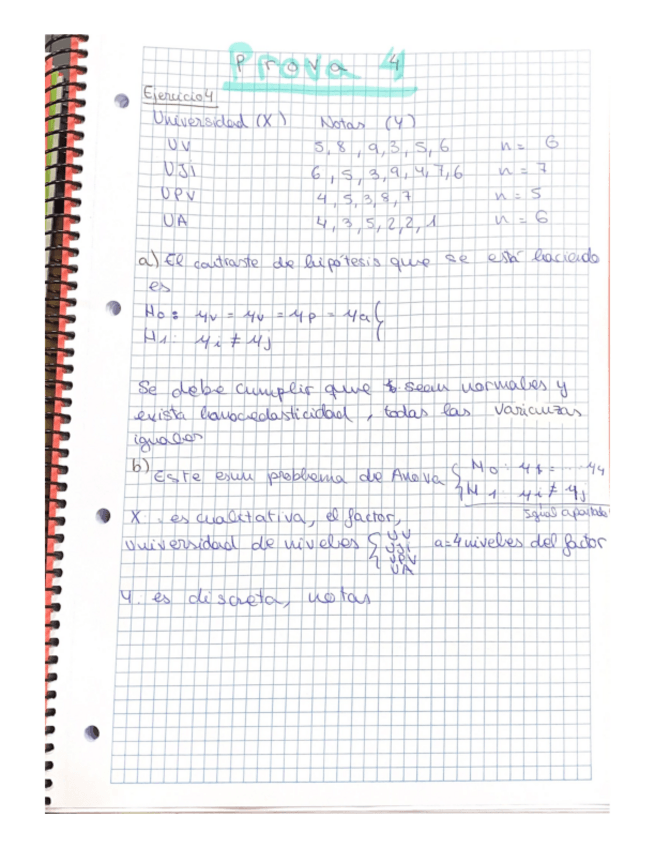 Prova 4
Ejercicio 4
Universidad (X) Notas (Y)
UV 5, 8, 9, 3, 5, 6 n = 6
UJI 6, 5, 3, 9, 4, 7, 6 n = 7
UPV 4, 5, 3, 8, 7 n = 5
UA 4, 3, 5, 2, 2, 1 n = 6
a) El contraste de hipótesis que se está haciendo
es
H0: μv = μv = μp = μa {
H1: μi ≠ μj
Se debe cumplir que sean normales y
exista homocedasticidad, todas las varianzas
iguales
b)
Este es un problema de Anova { H0: μ1 = ... μ4
H1 μi ≠ μj
Igual apartado
X. es cualitativa, el factor,
Universidad de niveles { UV UJI UPV UA a=4 niveles del factor
Y. es discreta, notas